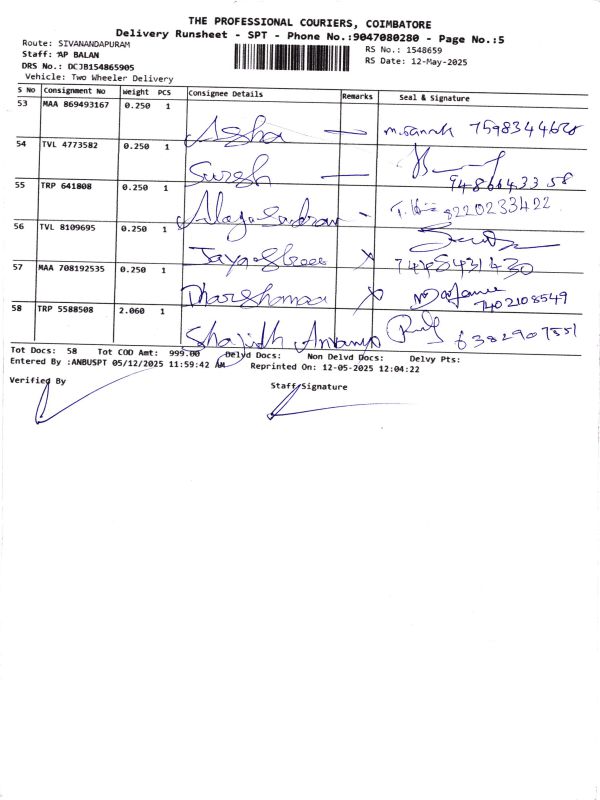 THE PROFESSIONAL COURIERS, COIMBATORE
Delivery Runsheet - SPT - Phone No.:9047080280 - Page No.:5
Route: SIVANANDAPURAM
Staff: AP BALAN
RS No.: 1548659
DRS No.: DCJB154865905
RS Date: 12-May-2025
Vehicle: Two Wheeler Delivery
S No Consignment No Weight PCS Consignee Details Remarks Seal & Signature
53 MAA 869493167 0.250 1 Asha
54 TVL 4773582 0.250 1 Suresh 9486643358
55 TRP 641808 0.250 1 8220233422
56 TVL 8109695 0.250 1 Jaya Shree
57 MAA 708192535 0.250 1 7402108549
58 TRP 5588508 2.060 1 6382907551
Tot Docs: 58 Tot COD Amt: 999.00 Delvd Docs: Non Delvd Docs: Delvy Pts:
Entered By :ANBUSPT 05/12/2025 11:59:42 AM Reprinted On: 12-05-2025 12:04:22
Verified By
Staff Signature